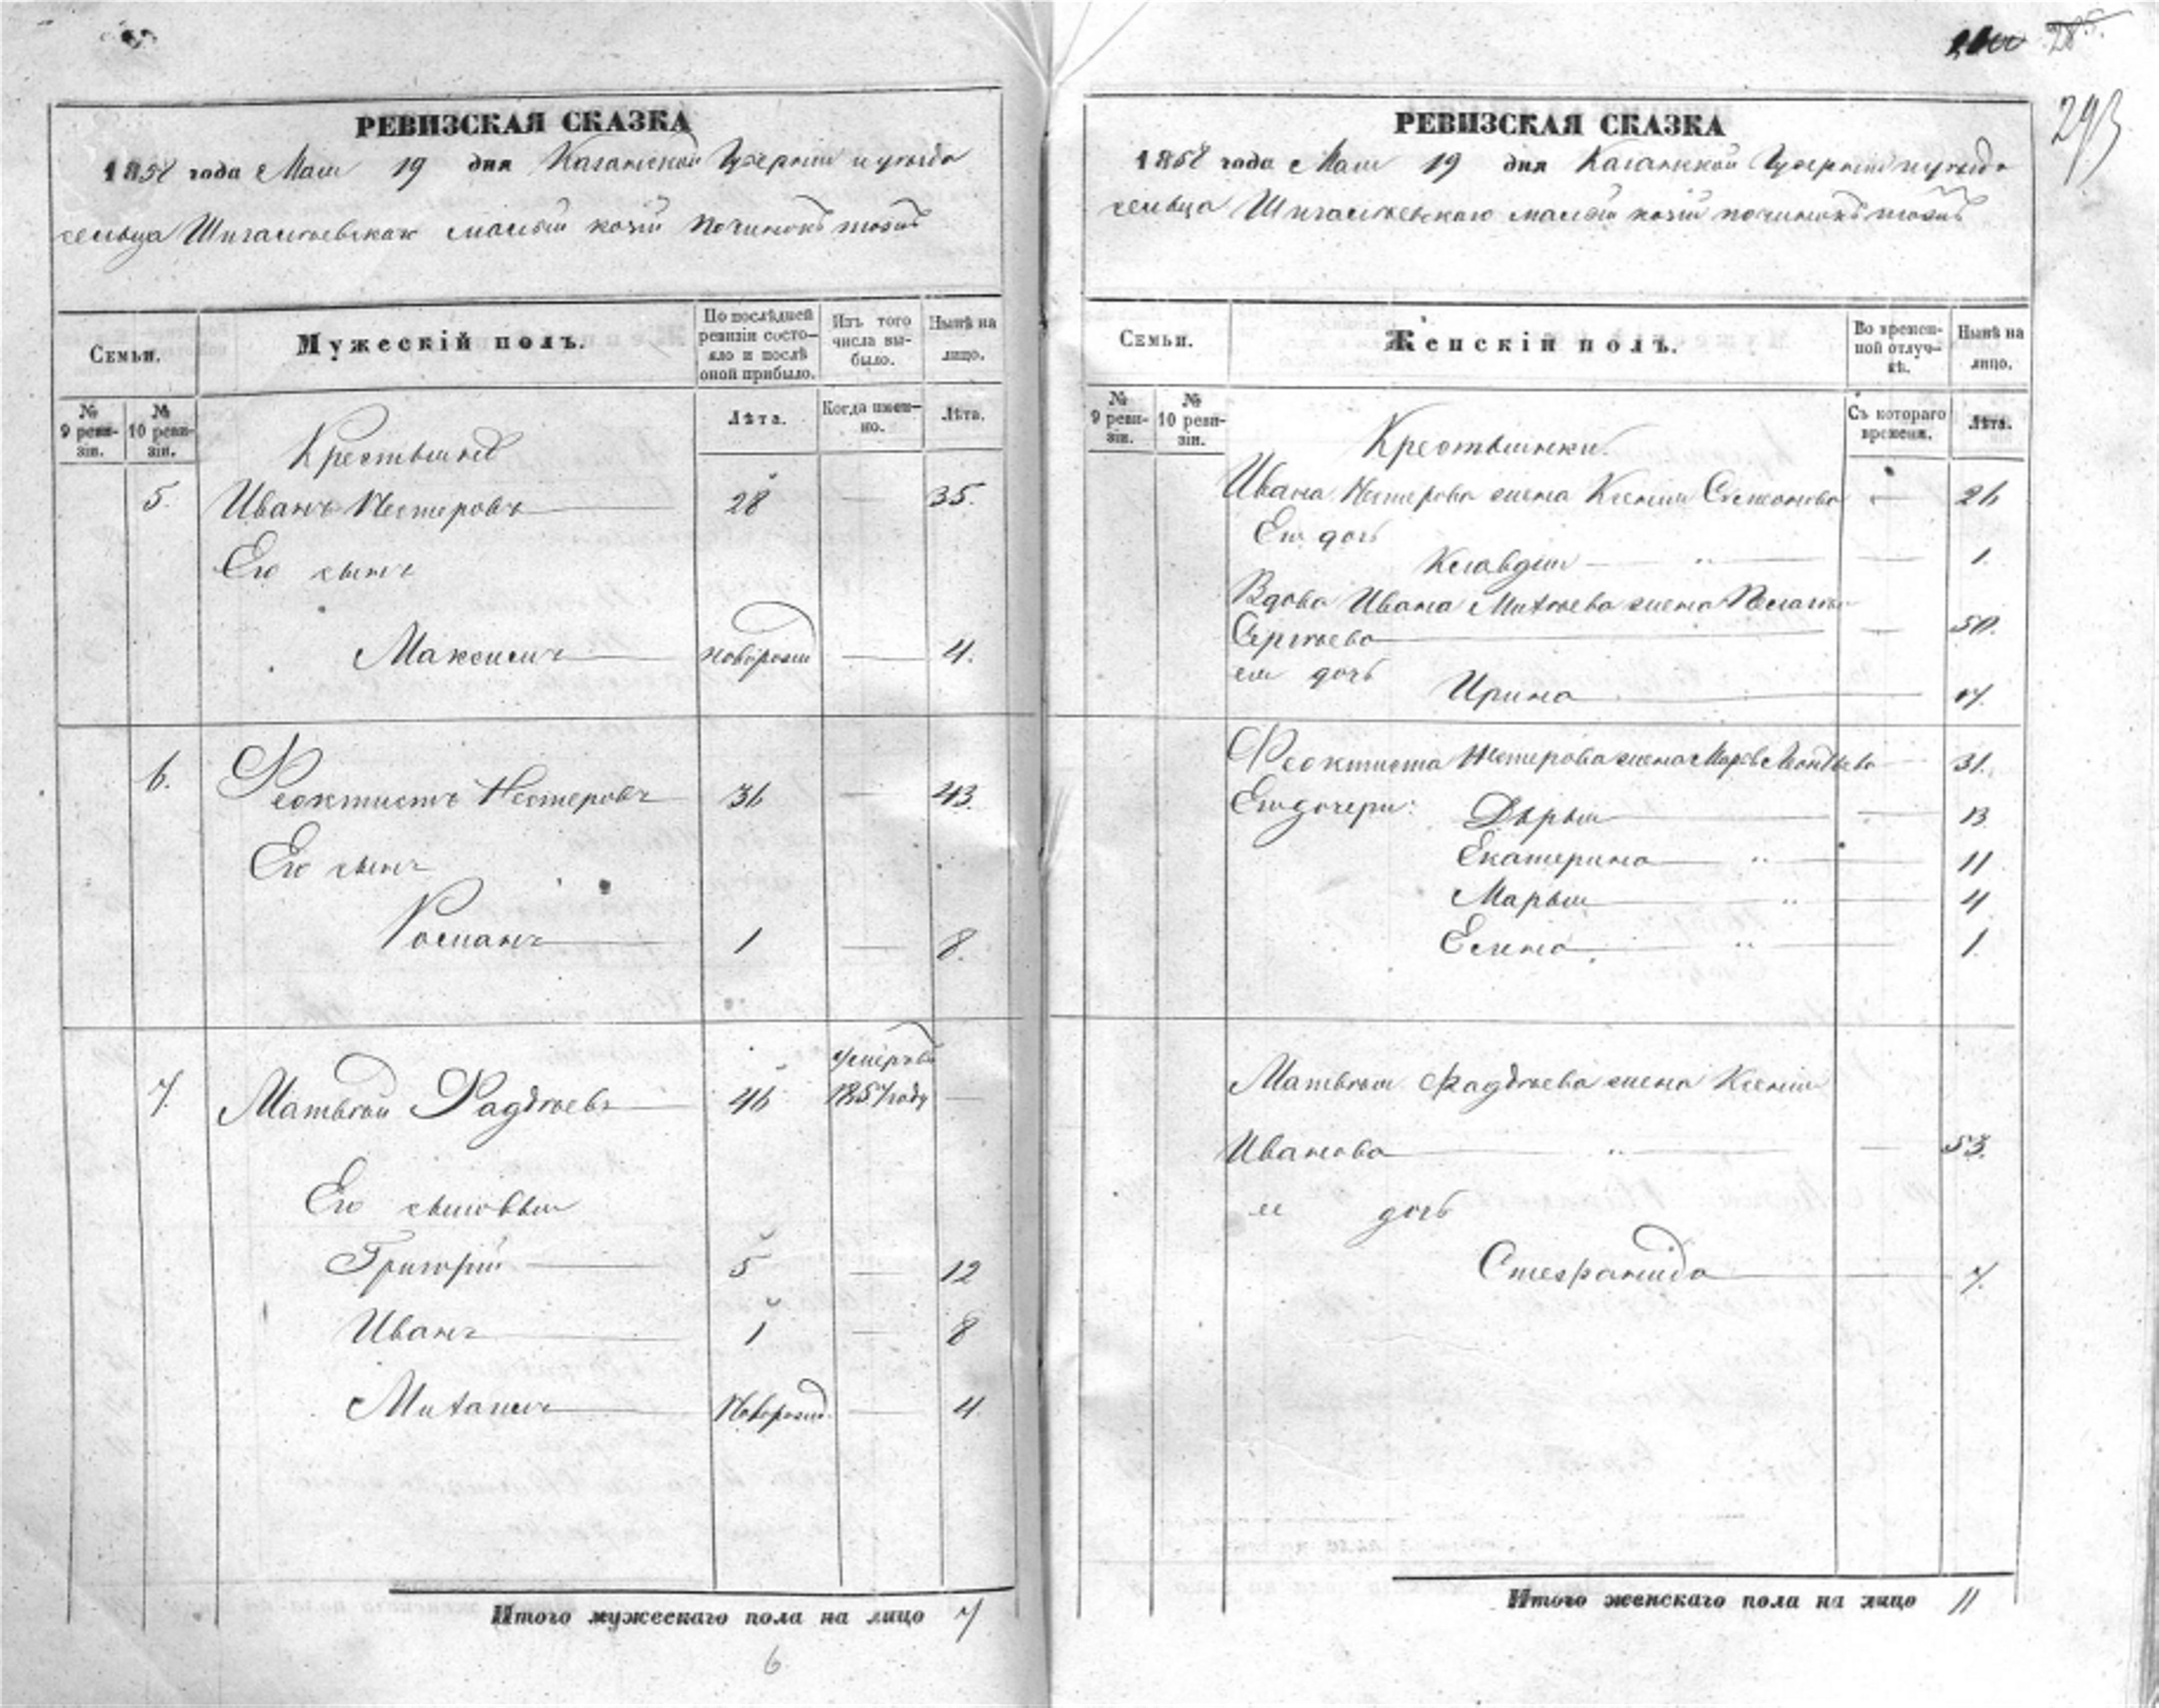 285.
293
РЕВИЗСКАЯ СКАЗКА
1858 года Маія 19 дня Казанской Губерніи и уезда
сельца Шигалѣевскаго малый починокъ тожъ
Семьи.
Мужескій полъ.
По послѣдней ревизіи состояло и послѣ оной прибыло.
Изъ того числа выбыло.
Нынѣ на лицо.
№ 9 ревизіи.
№ 10 ревизіи.
Лѣта.
Когда именно.
Лѣта.
Крестьяне
5. Иванъ Нестеровъ 28 — 35.
Его сынъ
Максимъ новорожд — 4.
6. Феоктистъ Нестеровъ 36 — 43.
Его сынъ
Романъ 1 — 8.
7. Матвѣй Фадѣевъ 46 умеръ въ 1857 году —
Его сыновья
Григорій 5 — 12
Иванъ 1 — 8
Михаилъ Новорожд. — 4
Итого мужескаго пола на лицо 7
6
РЕВИЗСКАЯ СКАЗКА
1858 года Маія 19 дня Казанской Губерніи и уезда
сельца Шигалѣевскаго малый починокъ тожъ
Семьи.
Женскій полъ.
Во временной отлучкѣ.
Нынѣ на лицо.
№ 9 ревизіи.
№ 10 ревизіи.
Съ котораго времени.
Лѣта.
Крестьянки.
Ивана Нестерова жена Ксенія Степанова — 26
Его дочь
Клавдія — 1
Вдова Ивана Матвѣева жена Пелагея
Сергѣева — 50.
ея дочь Ирина 17.
Феоктиста Нестерова жена Леонтьева 31.
Его дочери: Дарья — 13
Екатерина — 11
Марья — 4
Елена — 1.
Матвѣя Фадѣева жена Ксенія
Иванова — 53.
ее дочь
Степанида 7.
Итого женскаго пола на лицо 11